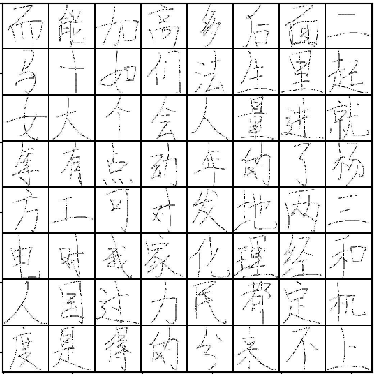 而能加高多后面二
马十如们法生里起
女大个会人量进就
等有点动平的了物
方工可对发地两三
电时我家化理经和
人国过力民都定机
度是得的分来不上